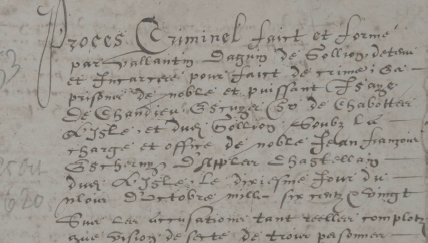 Proces Criminel faict et formé
par Vallantin Dagun de Gollion detenu
et Incarceré pour faict de crime; Es
prisons de noble et puissant Esaye
de Chandieu Escuyer Sr de Chabotter
L'isle et dud Gollion Soubz la
charge et office de noble Jehan françoys
Chastellain
dud L'isle Le dixiesme Jour du
moys D'octobre mille six centz Vingt
Sus les accusations tant complotz
que vision de secte de trois personnes